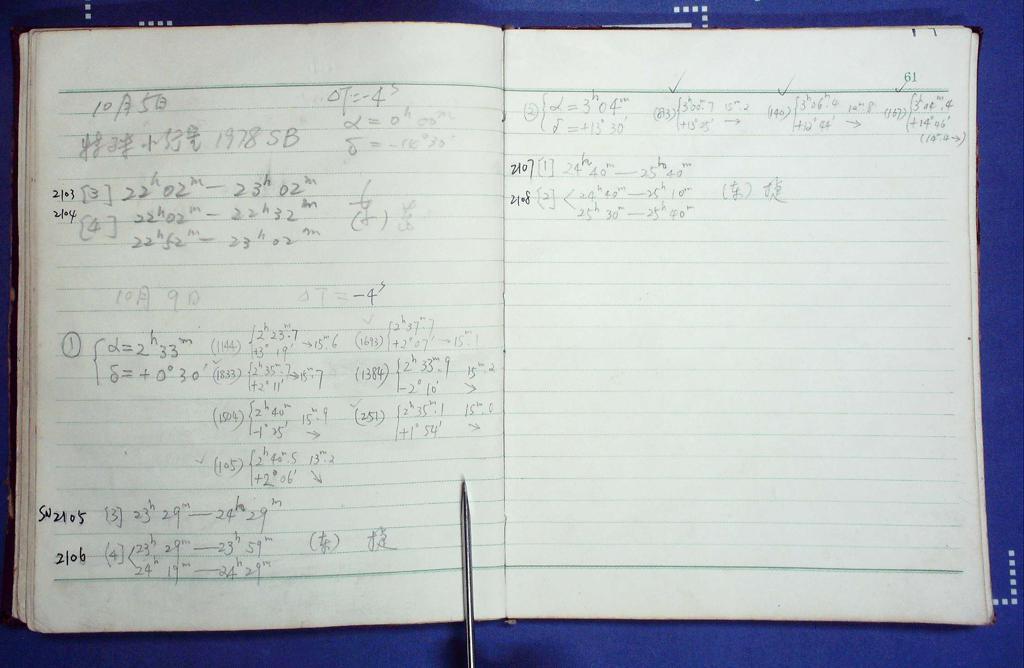 10月5日 ΔT=-4ˢ
特殊小行星 1978 SB α=0ʰ00ᵐ
δ=-14°30′
2103 [3] 22ʰ02ᵐ—23ʰ02ᵐ
2104 [4] 22ʰ02ᵐ—22ʰ32ᵐ
22ʰ52ᵐ—23ʰ02ᵐ
10月9日 ΔT=-4ˢ
① α=2ʰ33ᵐ (1144) 2ʰ23ᵐ.7 →15ᵐ.6 (1693) 2ʰ37ᵐ.7 →15ᵐ.1
+3°19′ +2°07′
δ=+0°30′ (1833) 2ʰ35ᵐ.7 →15ᵐ.7 (1384) 2ʰ33ᵐ.9 15ᵐ.2
+2°11′ -2°10′
(1504) 2ʰ40ᵐ 15ᵐ.9 (251) 2ʰ35ᵐ.1 15ᵐ.0
-1°25′ +1°54′
(105) 2ʰ40ᵐ.5 13ᵐ.2
+2°06′
SN2105 [3] 23ʰ29ᵐ—24ʰ29ᵐ
2106 [4] 23ʰ29ᵐ—23ʰ59ᵐ (东) 捷
24ʰ19ᵐ—24ʰ29ᵐ
61
② α=3ʰ04ᵐ 3ʰ00ᵐ.7 15ᵐ.2 (140) 3ʰ06ᵐ.4 (167) 3ʰ04ᵐ.4
δ=+13°30′ → +12°44′ → +14°06′
(14ᵐ.4→)
2107 [1] 24ʰ40ᵐ—25ʰ40ᵐ
2108 [2] 24ʰ40ᵐ—25ʰ10ᵐ (东) 捷
25ʰ30ᵐ—25ʰ40ᵐ